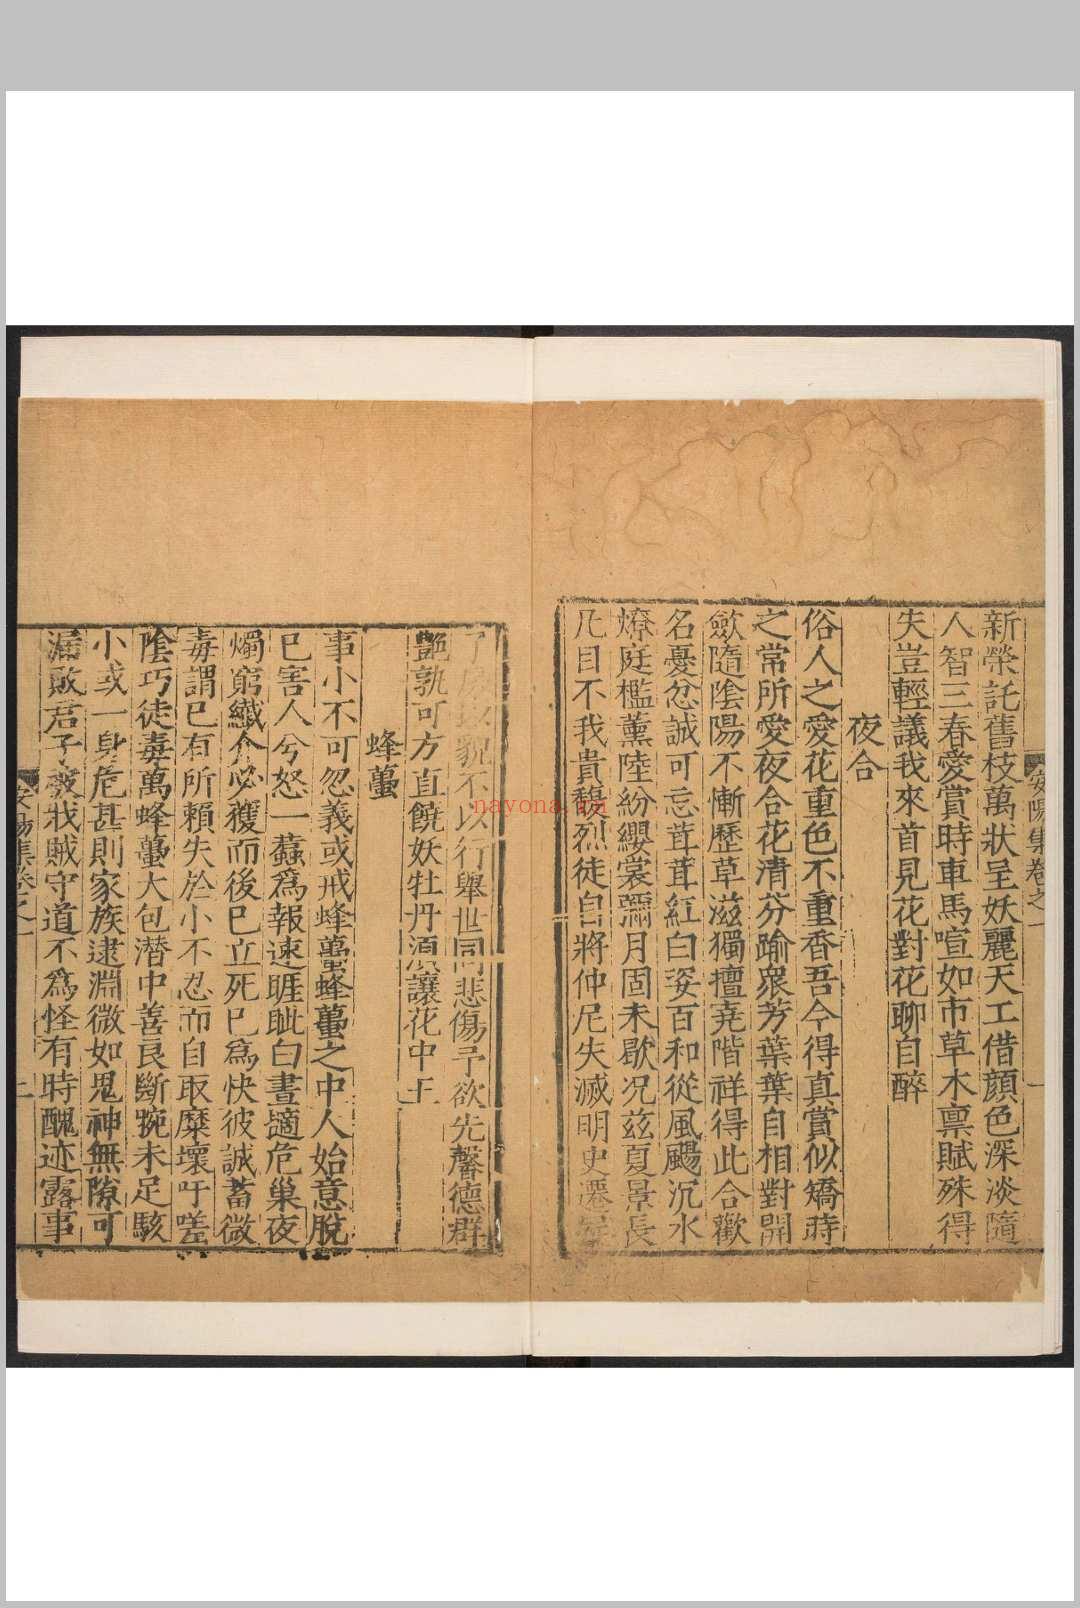 安陽集卷之一
新榮託舊枝萬狀呈妖麗天工借顏色深淡隨
人智三春愛賞時車馬喧如市草木禀賦殊得
失豈輕議我來首見花對花聊自醉
夜合
俗人之愛花重色不重香吾今得真賞似矯時
之常所愛夜合花清芬踰衆芳葉葉自相對開
斂隨陰陽不慚歷草滋獨擅堯階祥得此合歡
名憂忿誠可忘茸茸紅白姿百和從風颺沉水
燎庭檻薰陸紛纓裳彌月固未歇况兹夏景長
凡目不我貴馥烈徒自將仲尼失滅明史遷
以貌不以行舉世同悲傷予欲先馨德群
艷孰可方直饒妖牡丹須讓花中王
蜂蠆
事小不可忽義或戒蜂蠆蜂蠆之中人始意脫
巳害人兮怒一蠚爲報速睚眦白晝適危巢夜
燭窮纖介必獲而後巳立死巳爲快彼誠蓄微
毒謂巳有所賴失於小不忍而自取糜壞吁嗟
陰巧徒毒萬蜂蠆大包潜中善良斷豌未足駭
小或一身危甚則家族逮淵微如鬼神無隙可
漏敗君子被戕賊守道不爲怪有時醜迹露事
nayona.cn